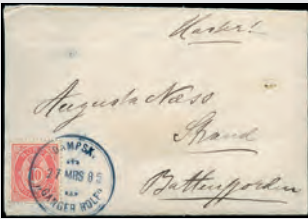 Haster!
Augusta Næss
Strand
Battenfjorden
DAMPSK.
27 MRS 85
GANGER ROLF